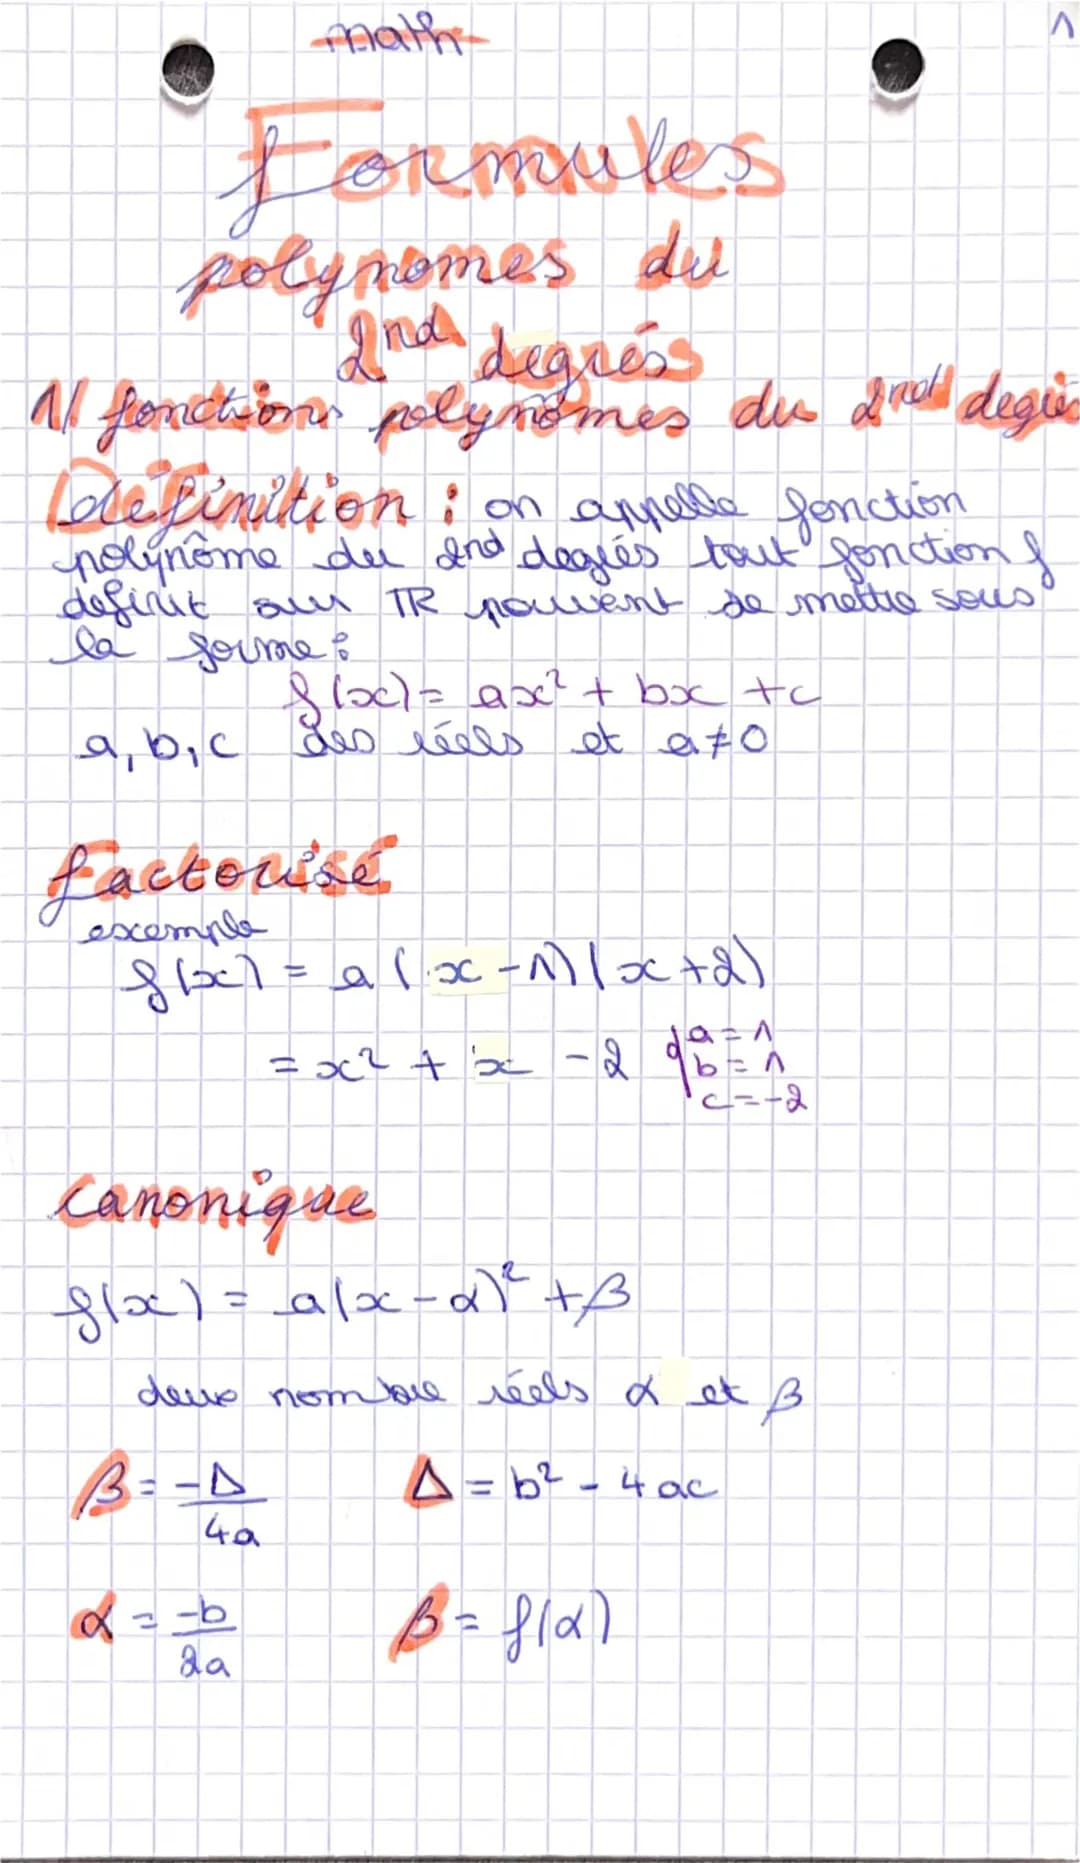 math
1
Formules
polynomes du
2nd degrés
1/ fonctions polynômes du 2nd degrés
Définition : on appelle fonction
polynôme du 2nd degrés tout fonction f
definit sur IR pouvent se mettre sous
la forme :
f(x) = ax² + bx + c
a, b, c des réels et a ≠ 0
factorisé
exemple
f(x) = a(x - 1)(x + 2)
= x² + x - 2 { a = 1
b = 1
c = -2
canonique
f(x) = a(x - α)² + β
deux nombre réels α et β
β = -Δ/4a Δ = b² - 4ac
α = -b/2a β = f(α)